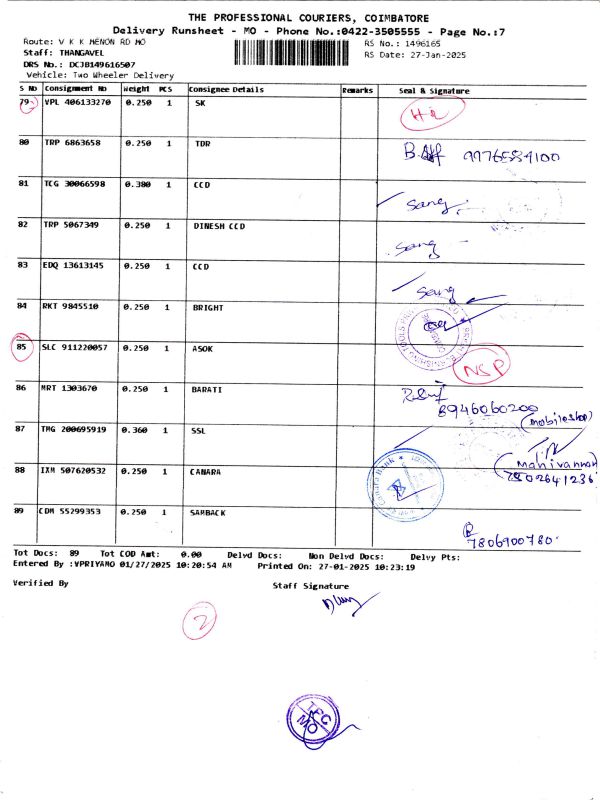 THE PROFESSIONAL COURIERS, COIMBATORE
Delivery Runsheet - MO - Phone No.:0422-3505555 - Page No.:7
Route: V K K MENON RD MO
RS No.: 1496165
Staff: THANGAVEL
RS Date: 27-Jan-2025
DRS No.: DCJB149616507
Vehicle: Two Wheeler Delivery
S No Consignment No Weight PCS Consignee Details Remarks Seal & Signature
79 VPL 406133270 0.250 1 SK
80 TRP 6863658 0.250 1 TDR 9976584100
81 TCG 30066598 0.380 1 CCD Sang
82 TRP 5067349 0.250 1 DINESH CCD Sang
83 EDQ 13613145 0.250 1 CCD Sang
84 RKT 9845510 0.250 1 BRIGHT
85 SLC 911220057 0.250 1 ASOK NSP
86 MRT 1303670 0.250 1 BARATI 8946060200
(mobileshop)
87 TMG 200695919 0.360 1 SSL
(Manivannan)
88 IXM 507620532 0.250 1 CANARA 7502641236
89 CDM 55299353 0.250 1 SARBACK
7806900780
Tot Docs: 89 Tot COD Amt: 0.00 Delvd Docs: Non Delvd Docs: Delvy Pts:
Entered By :VPRIYAMO 01/27/2025 10:20:54 AM Printed On: 27-01-2025 10:23:19
Verified By Staff Signature
2
TPC
MO